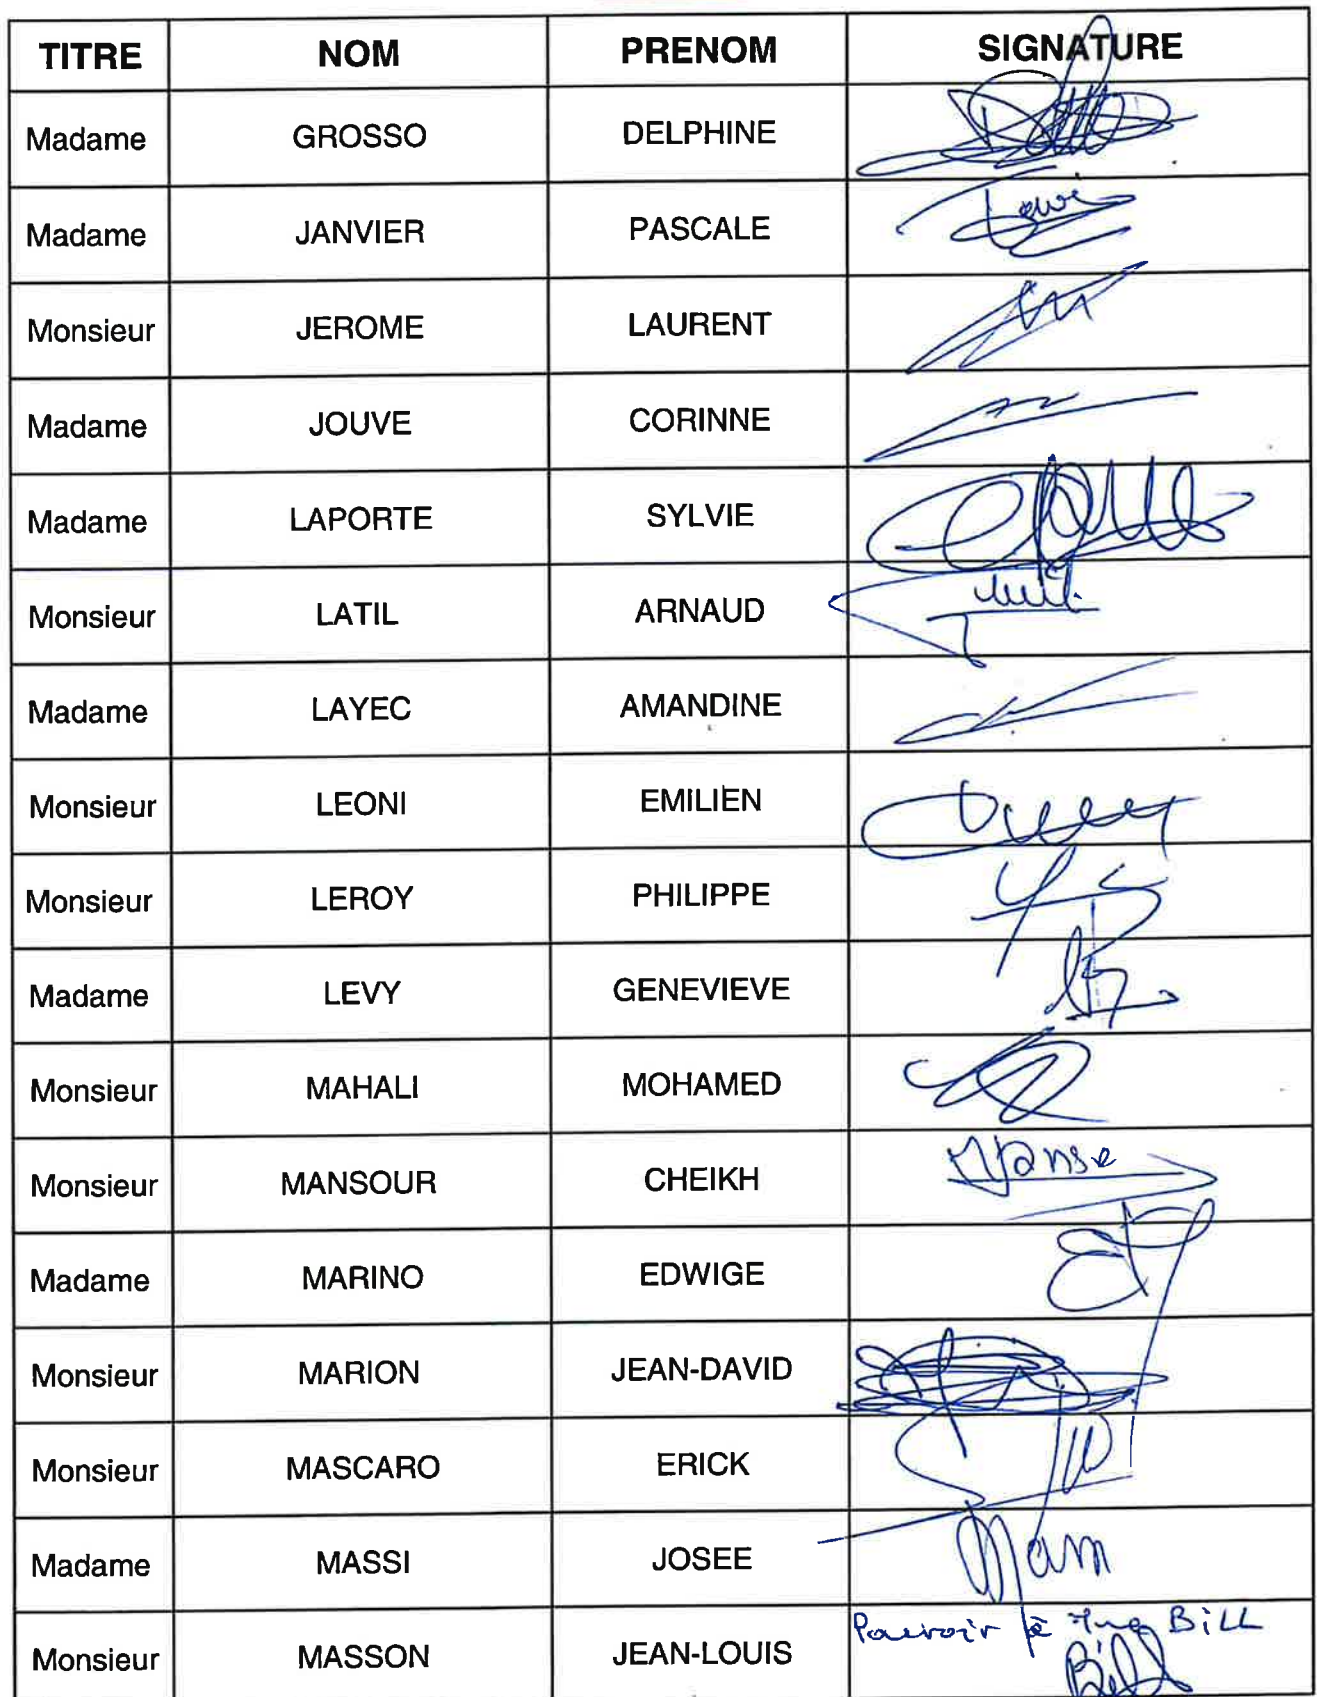 TITRE NOM PRENOM SIGNATURE
Madame GROSSO DELPHINE
Madame JANVIER PASCALE
Monsieur JEROME LAURENT
Madame JOUVE CORINNE
Madame LAPORTE SYLVIE
Monsieur LATIL ARNAUD
Madame LAYEC AMANDINE
Monsieur LEONI EMILIEN
Monsieur LEROY PHILIPPE
Madame LEVY GENEVIEVE
Monsieur MAHALI MOHAMED
Monsieur MANSOUR CHEIKH
Madame MARINO EDWIGE
Monsieur MARION JEAN-DAVID
Monsieur MASCARO ERICK
Madame MASSI JOSEE
Monsieur MASSON JEAN-LOUIS Pouvoir à BILL